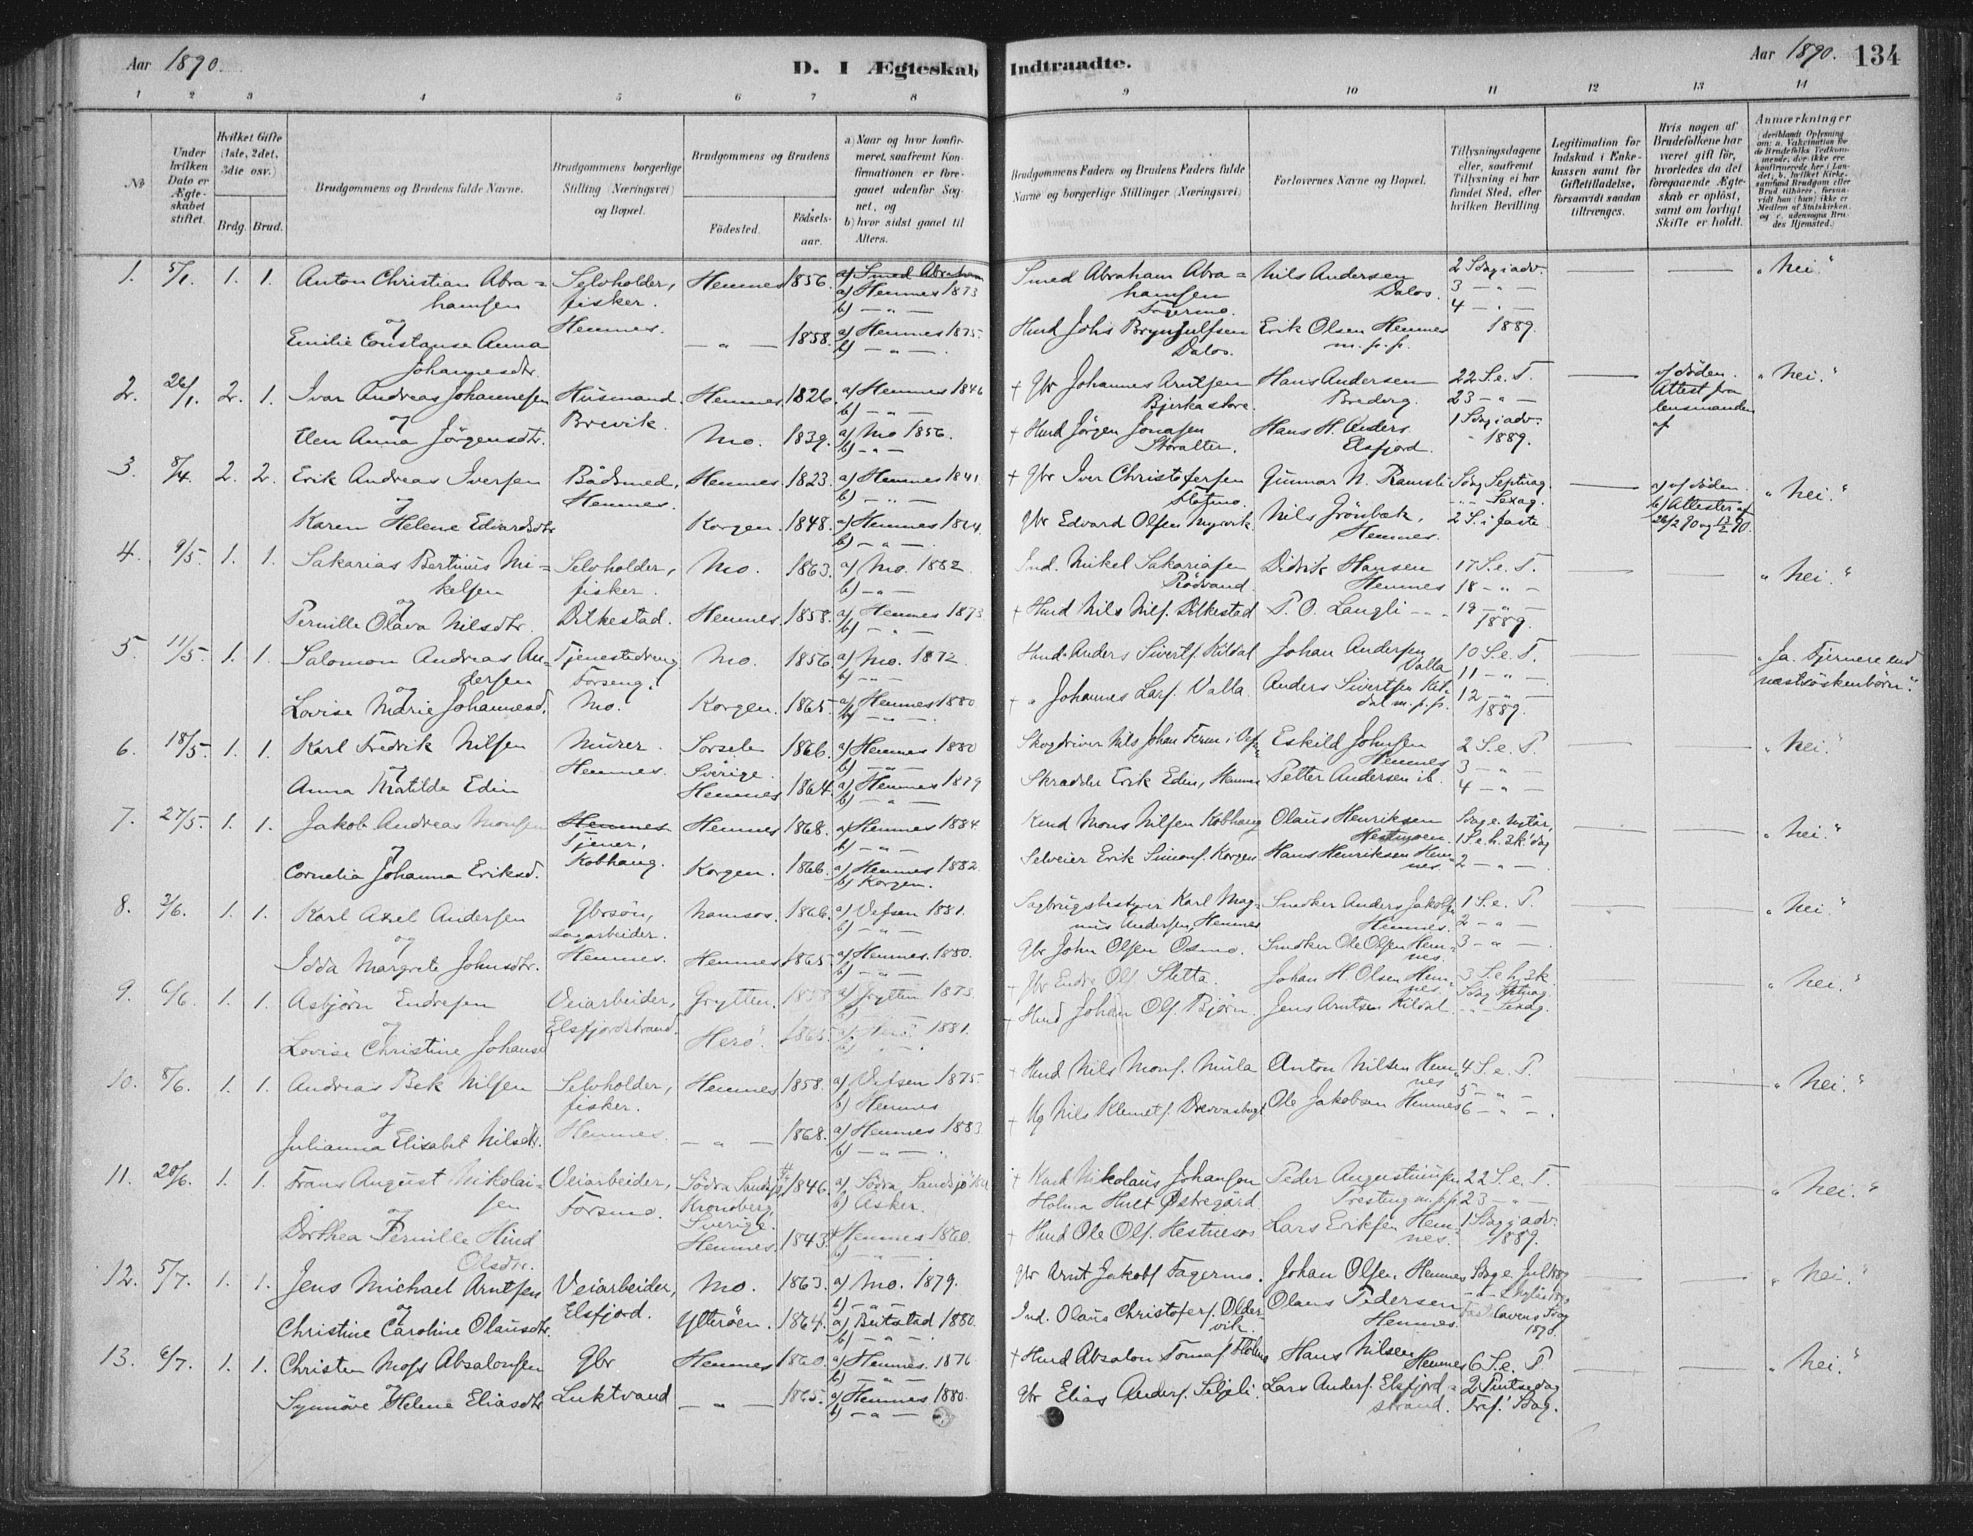 Aar 1890.
D. I Ægteskab Indtraadte.
Aar 1890. 134
1 2 3 4 5 6 7 8 9 10 11 12 13 14
No
Under hvilken Dato er Ægteskabet stiftet.
Hvilket Gifte (1ste, 2det, 3die osv.)
Brdg. Brud.
Brudgommens og Brudens fulde Navne.
Brudgommens borgerlige Stilling (Næringsvei) og Bopæl.
Brudgommens og Brudens
Fødested. Fødselsaar.
a) Naar og hvor konfirmeret, saafremt Konfirmationen er foregaaet udenfor Sognet, og
b) hvor sidst gaaet til Alters.
Brudgommens Faders og Brudens Faders fulde Navne og borgerlige Stillinger (Næringsvei)
Forlovernes Navne og Bopæl.
Tillysningsdagene eller, saafremt Tillysning ei har fundet Sted, efter hvilken Bevilling
Legitimation for Indskud i Enkekassen samt for Giftetilladelse, forsaavidt saadan tiltrænges.
Hvis nogen af Brudefolkene har været gift før, hvorledes da det foregaaende Ægteskab er opløst, samt om lovligt Skifte er holdt.
Anmærkninger
1. 5/1. 1. 1. Anton Christian Abra=
hamsen
og
Emilie Constanse Anna
Johannesdtr.
Selvholder,
fisker.
Hemnes.
Hemnes 1856. a) Smed Abraham
a) Hemnes 1873
b) — " —
— " — 1858. a) Hemnes 1875.
b) — " —
Smed Abraham Abra=
hamsen
Fagermo.
Husd Johs Brynjulfsen
Dalos.
Nils Andersen
Dalos.
Erik Olsen Hemnes
m. p. p.
2 Sdag i adv.
3 — " —
4 — " —
1889.
"Nei."
2. 26/1. 2. 1. Ivar Andreas Johannesen
og
Elen Anna Jörgensdtr.
Husmand.
Brevik.
Hemnes. 1826. a) Hemnes 1846
b) — " —
Mo. 1839. a) Mo 1856.
b) — " —
+ Gbr Johannes Arntsen
Bjerka store.
+ Husd Jörgen Jonasen
Storalter.
Hans Andersen
Brederg.
Hans H. Anders.
Elsfjord.
22 S. e. T.
23 — " —
1 Sdag i adv.
1889.
af döden.
Attest fra
lensmanden
af
"Nei."
3. 8/4. 2. 2. Erik Andreas Iversen
og
Karen Helene Edvardsdtr.
Bådsmed,
Hemnes.
Hemnes. 1823. a) Hemnes 1841
b) — " —
Korgen. 1848. a) Hemnes 1864
b) — " —
+ Gbr Iver Christofersen
Gbr Edvard Olsen Myrvik
Gunnar N. Ramsli
Nils Grönbæk,
Hemnes.
Sdag Septuag.
— " — Sexag.
2 S. i faste
a) af döden.
b) Attester af
26/2 90 og 13/2 90.
"Nei."
4. 9/5. 1. 1. Sakarias Bertinus Mi=
kelsen
og
Pernille Olava Nilsdtr.
Selvholder,
fisker.
Dilkestad.
Mo. 1863. a) Mo. 1882
b) — " —
Hemnes. 1858. a) Hemnes 1873
b) — " —
Ind. Mikel Sakariasen
Rödvand.
+ Husd Nils Nils. Dilkestad
Didrik Hansen
Hemnes
P. O. Langli — " —
17 S. e. T.
18 — " —
19 — " —
1889.
"Nei."
5. 11/5. 1. 1. Salomon Andreas An=
dersen
og
Lovise Marie Johannesd.
Tjenestedreng
Forseng.
Mo.
Mo. 1856 a) Mo. 1872
b) — " —
Korgen. 1865 a) Hemnes 1880
b) — " —
Husd. Anders Sivertf. Kildal
+ " Johannes Larf. Valla.
Johan Andersen
Valla
Anders Sivertsen Kil=
dal m. p. p.
10 S. e. T.
11 — " —
12 — " —
1889.
"Ja. Fjernere end
næstsöskenbörn."
6. 18/5. 1. 1. Karl Fredrik Nilsen
og
Anna Matilde Edin
Murer.
Hemnes.
Sorsele
Sverige. 1866. a) Hemnes 1880
b) — " —
Hemnes 1864. a) Hemnes 1879
b) — " —
Skogdriver Nils Johan
Skrædder Erik Edin, Hemnes
Eskild Johnsen
Hemnes
Petter Andersen ib.
2 S. e. P.
3 — " —
4 — " —
"Nei."
7. 27/5. 1. 1. Jakob Andreas Monsen
og
Cornelia Johanna Eriksd.
Hemnes
Tjener,
Kobhaug.
Hemnes 1868. a) Hemnes 1884
b) — " —
Korgen. 1866. a) Hemnes 1882
b) Korgen.
Husd Mons Nilsen Kobhaug
Selveier Erik Simonf. Korgen
Olaus Henriksen
Hestmoen
Hans Henriksen Hem=
nes.
Sdag e. Nytår,
1 S. e. h. 3 k. dag
2 — " —
"Nei."
8. 2/6. 1. 1. Karl Axel Andersen
og
Idda Margrete Johnsdtr.
Gbrsön,
Sagarbeider.
Hemnes.
Namsos. 1866. a) Vefsen 1881.
b) — " —
Hemnes. 1865 a) Hemnes. 1880.
b) — " —
Sagbrugsbestyrer Karl Mag=
nus Andersen, Hemnes
Gbr John Olsen Osmo.
Snedker Anders Jakobs.
Hemnes.
Snedker Ole Olsen Hem=
nes.
1 S. e. P.
2 — " —
3 — " —
"Nei."
9. 6/6. 1. 1. Asbjörn Endresen
og
Lovise Christine Johansd
Veiarbeider,
Elsfjordstrand.
Grytten. a) Grytten 1873.
b) — " —
Herö. 1865. 1881.
+ Gbr Endre Ols. Sletta.
+ Husd Johan Ols. Björn.
Johan H Olsen Hem=
nes.
Jens Arntsen Kildal.
3 S. e. h. 3 k.
Sdag Septuag.
— " — Sexag.
"Nei."
10. 8/6. 1. 1. Andreas Bek Nilsen
og
Julianna Elisabet Nilsdtr.
Selvholder,
fisker.
Hemnes.
Hemnes 1858. a) Vefsen 1875.
b) Hemnes
— " — 1868. a) Hemnes 1883
b) — " —
+ Husd Nils Monf. Mula
+ Nils Klemetf.
Anton Nilsen Hem=
nes
Ole Jakobsen Hemnes
4 S. e. P.
5 — " —
6 — " —
"Nei."
11. 20/6. 1. 1. Frans August Nikolai=
sen
Dorthea Pernille Hind
Olsdtr.
Veiarbeider,
Forsmo.
Södra Sandsjö
Kronoberg
Sverige.
1846. a) Södra Sandsjö
b) Asker.
Hemnes. 1843. Hemnes 1860.
b) — " —
+ Nikolaus Johansson
Holma Hult Östregård
+ Husd Ole Ols. Hestnesos
Peder Augustinusen
m. p. p.
Lars Eriksen Hem=
nes.
22 S. e. T.
23 — " —
1 Sdag i adv.
1889.
"Nei."
12. 5/7. 1. 1. Jens Michael Arntsen
og
Christine Caroline Olausdtr.
Veiarbeider,
Elsfjord.
Mo. 1863. a) Mo. 1879.
b) — " —
Ytteröen. 1864. a) Beitstad 1880.
b) — " —
Gbr Arnt Jakobf Fagermo.
Ind. Olaus Christoferf. Older=
vik.
Johan Olsen Hemnes
Olaus Pedersen
Hemnes.
Sdag e. Jul
"Nei."
13. 6/7. 1. 1. Christen Moss Absalonsen
og
Synnöve Helene Eliasdtr
Gbr
Luktvand
Hemnes 1860. a) Hemnes. 1876
b) — " —
— " — 1865. a) Hemnes 1880.
b) — " —
+ Husd Absalon Tomas.
Gbr Elias Anders. Seljeli.
Hans Nilsen
Hemnes
Lars Anders. Elsfjord=
strand.
6 S. e. P.
2 Pintsedag
Tref. Sdag.
"Nei."